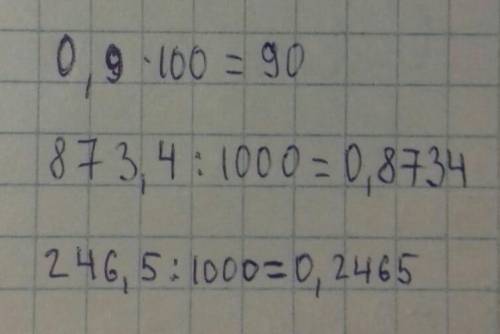 0,9·100=90
873,4:1000=0,8734
246,5:1000=0,2465